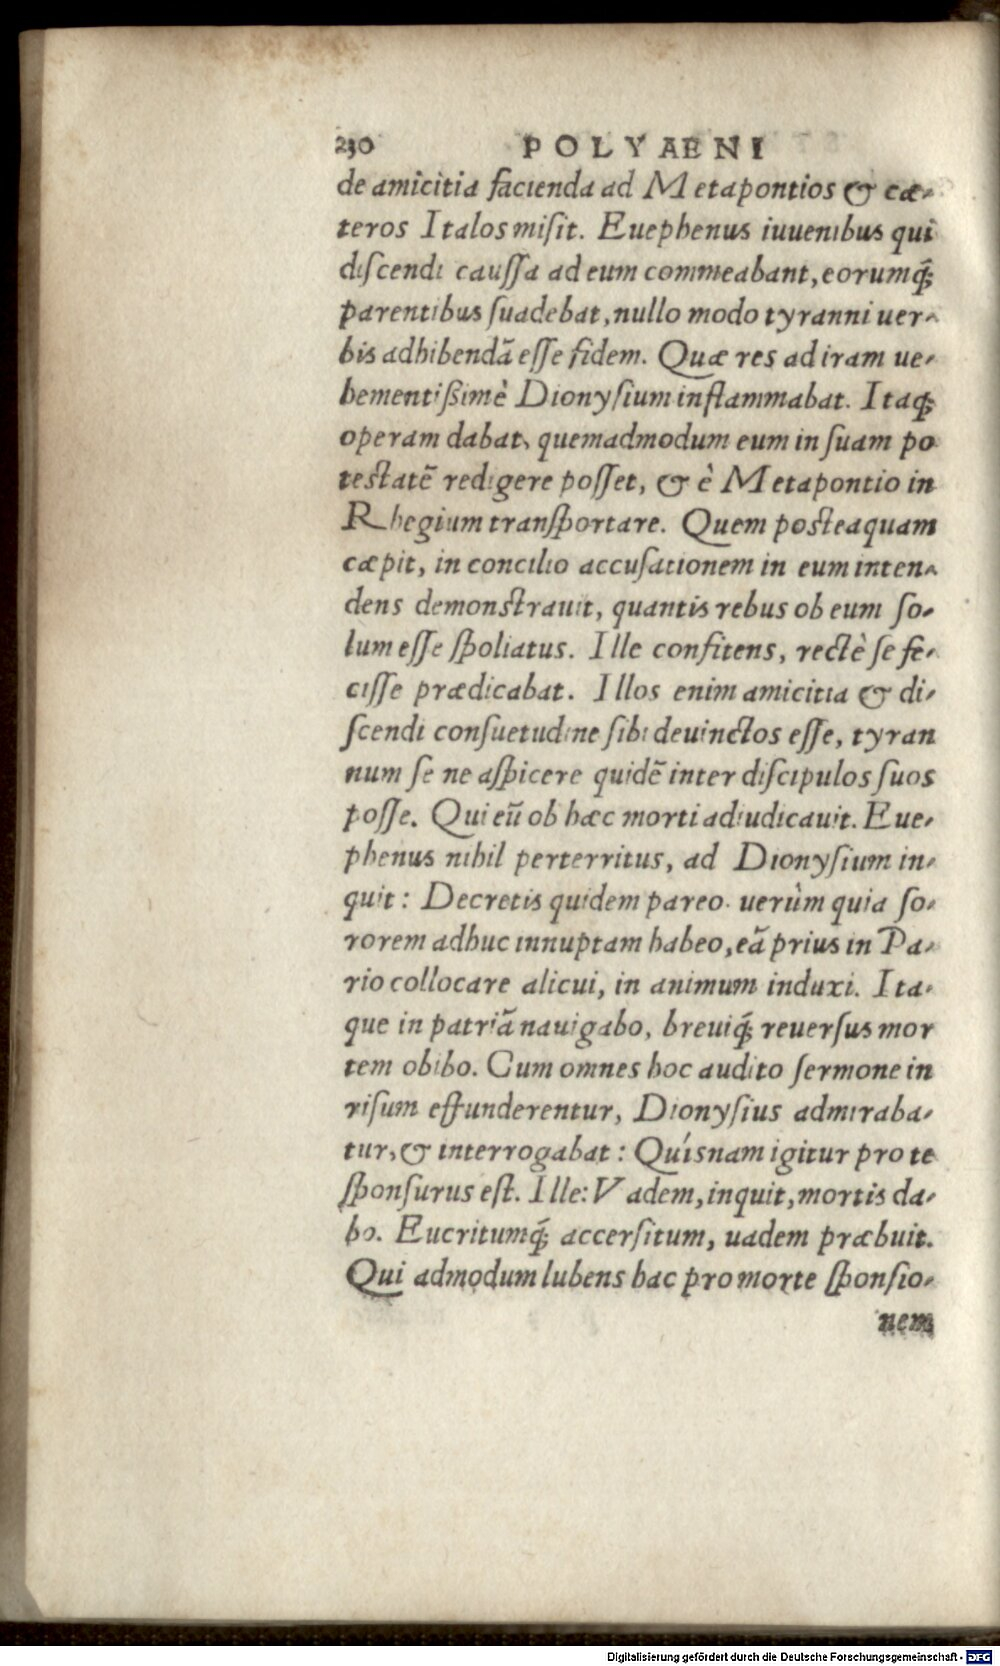 230 POLYAENI
de amicitia facienda ad Metapontios & cæ-
teros Italos misit. Euephenus iuuenibus qui
discendi caussa ad eum commeabant, eorumq́;
parentibus suadebat, nullo modo tyranni uer-
bis adhibendā esse fidem. Quæ res ad iram ue-
hementißimè Dionysium inflammabat. Itaq;
operam dabat, quemadmodum eum in suam po
testatē redigere posset, & è Metapontio in
Rhegium transportare. Quem posteaquam
cæpit, in concilio accusationem in eum inten-
dens demonstrauit, quantis rebus ob eum so-
lum esse spoliatus. Ille confitens, rectè se fe-
cisse prædicabat. Illos enim amicitia & di-
scendi consuetudine sibi deuinctos esse, tyran
num se ne aspicere quidē inter discipulos suos
posse. Qui eū ob hæc morti adiudicauit. Eue-
phenus nihil perterritus, ad Dionysium in-
quit: Decretis quidem pareo. uerùm quia so-
rorem adhuc innuptam habeo, eā prius in Pa-
rio collocare alicui, in animum induxi. Ita-
que in patriā nauigabo, breuiq́; reuersus mor
tem obibo. Cum omnes hoc audito sermone in
risum effunderentur, Dionysius admiraba-
tur, & interrogabat: Quísnam igitur pro te
sponsurus est. Ille: Vadem, inquit, mortis da-
bo. Eucritumq́; accersitum, uadem præbuit.
Qui admodum lubens hac pro morte sponsio-
nem
Digitalisierung gefördert durch die Deutsche Forschungsgemeinschaft - DFG